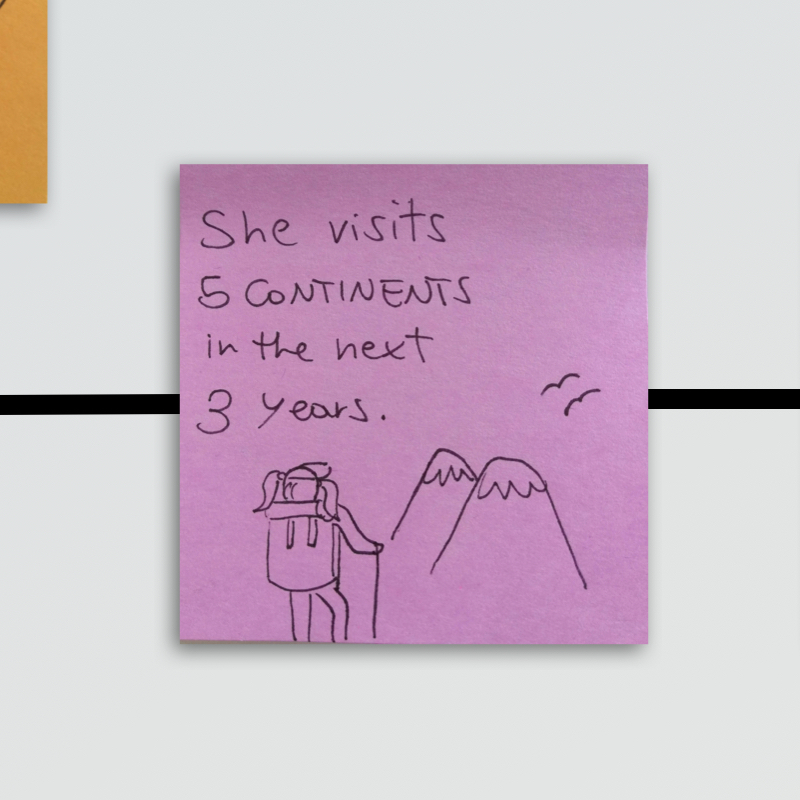 She visits
5 CONTINENTS
in the next
3 years.